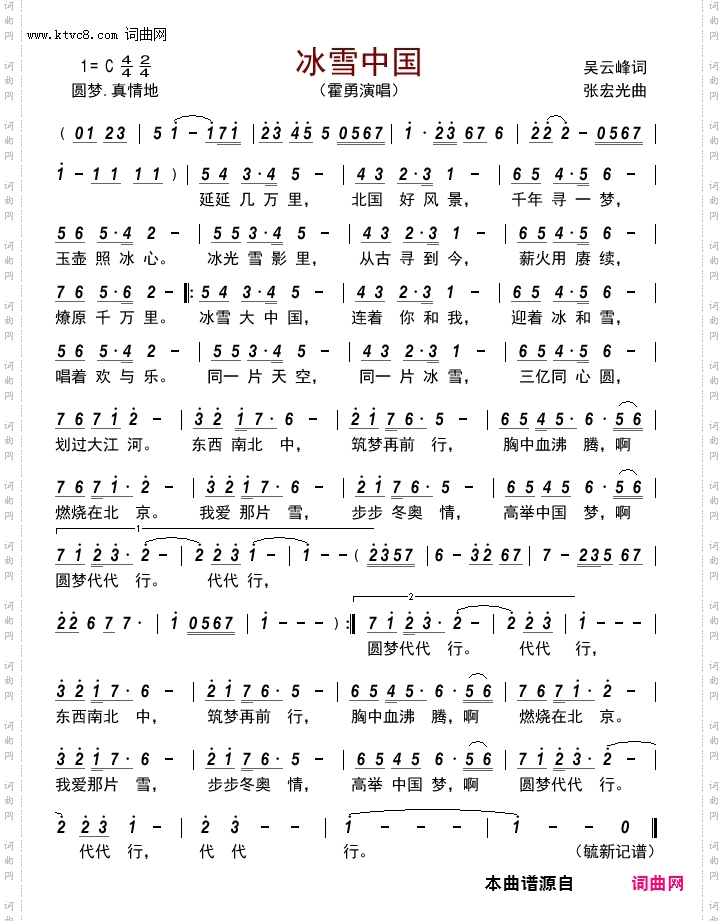 www.ktvc8.com 词曲网
冰雪中国
1= C 4/4 2/4
吴云峰词
圆梦.真情地
（霍勇演唱）
张宏光曲
( 01 23 | 5 1 - 171 | 23 45 5 0567 | 1· 23 67 6 | 22 2 - 0567 |
1 - 11 11 ) | 54 3·4 5 - | 43 2·3 1 - | 65 4·5 6 - |
延延 几 万 里， 北国 好 风 景， 千年 寻 一 梦，
56 5·4 2 - | 55 3·4 5 - | 43 2·3 1 - | 65 4·5 6 - |
玉壶 照 冰 心。 冰光 雪 影 里， 从古 寻 到 今， 薪火用 赓 续，
76 5·6 2 - ‖: 54 3·4 5 - | 43 2·3 1 - | 65 4·5 6 - |
燎原 千 万 里。 冰雪 大 中 国， 连着 你 和 我， 迎着 冰 和 雪，
56 5·4 2 - | 55 3·4 5 - | 43 2·3 1 - | 65 4·5 6 - |
唱着 欢 与 乐。 同一 片 天 空， 同一 片 冰 雪， 三亿 同 心 圆，
7671 2 - | 32 17· 6 - | 21 76· 5 - | 6545 6· 56 |
划过大江 河。 东西 南北 中， 筑梦再前 行， 胸中血沸 腾，啊
7671· 2 - | 32 17· 6 - | 21 76· 5 - | 6545 6· 56 |
燃烧在北 京。 我爱 那片 雪， 步步 冬奥 情， 高举中国 梦，啊
1
71 23· 2 - | 2 23 1 - | 1 - ( 2357 | 6 - 32 67 | 7 - 235 67 |
圆梦代代 行。 代代 行，
2
22 6 77· | 1 0567 | 1 - - - ) :‖ 71 23· 2 - | 2 23 1 - | 1 - - - |
圆梦代代 行。 代代 行，
32 17· 6 - | 21 76· 5 - | 6545 6· 56 | 7671· 2 - |
东西南北 中， 筑梦再前 行， 胸中血沸 腾，啊 燃烧在北 京。
32 17· 6 - | 21 76· 5 - | 6545 6· 56 | 71 23· 2 - |
我爱那片 雪， 步步冬奥 情， 高举 中国 梦，啊 圆梦代代 行。
2 23 1 - | 2 3 - - | 1 - - - | 1 - - 0 ‖
代代 行， 代 代 行。 （毓新记谱）
本曲谱源自 词曲网